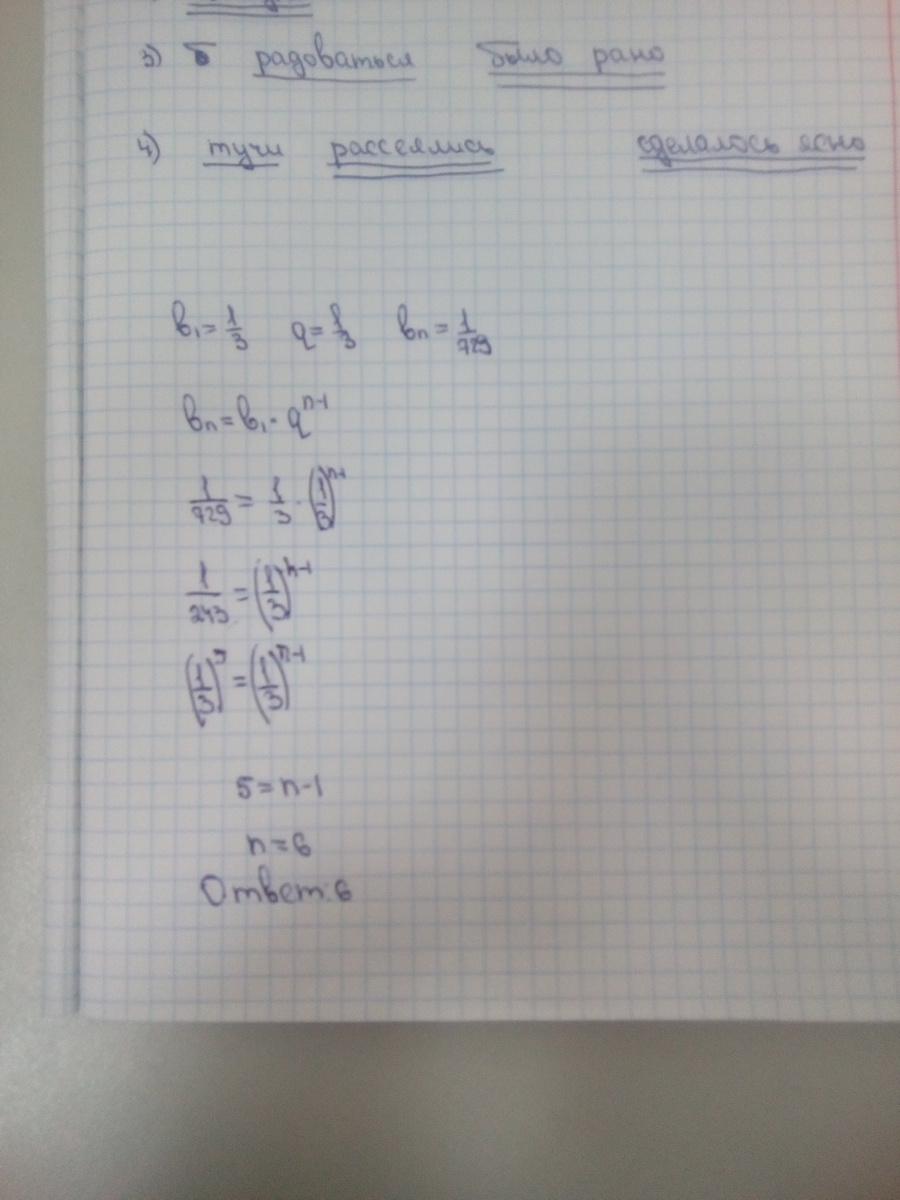 3) радоваться было рано
4) тучи рассеялись сделалось ясно
b₁ = 1/3 q = 1/3 bₙ = 1/729
bₙ = b₁ · qⁿ⁻¹
1/729 = 1/3 · (1/3)ⁿ⁻¹
1/243 = (1/3)ⁿ⁻¹
(1/3)⁵ = (1/3)ⁿ⁻¹
5 = n - 1
n = 6
Ответ: 6